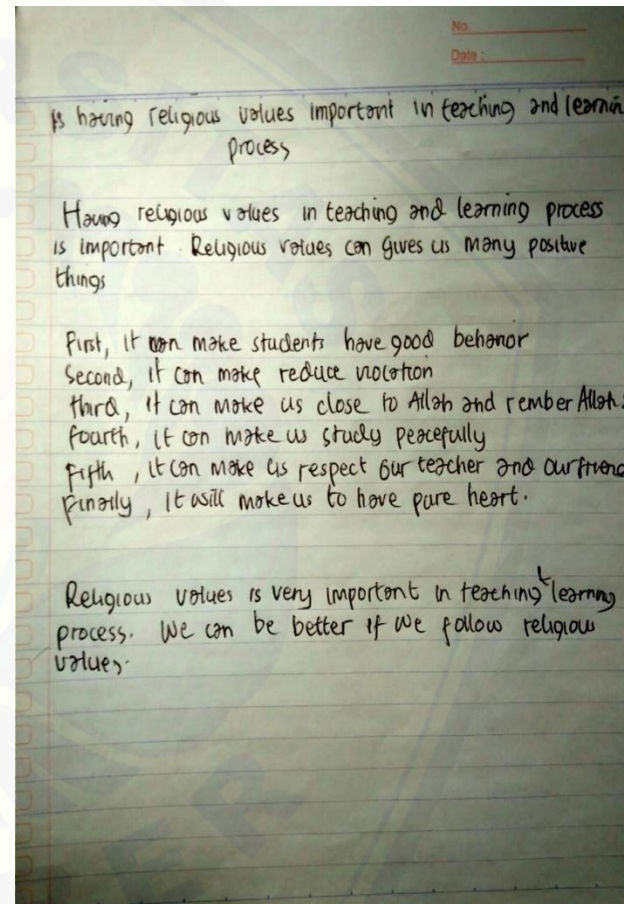 No.
Date :
Is having religious values important in teaching and learnin
process
Having religious values in teaching and learning process
is important. Religious values can gives us many positive
things
First, it can make students have good behavior
Second, it can make reduce violation
third, it can make us close to Allah and rember Allah.
fourth, it can make us study peacefully
Fifth, it can make us respect our teacher and our friend
Finally, it will make us to have pure heart.
Religious values is very important in teaching & learning
process. We can be better if we follow religious
values.